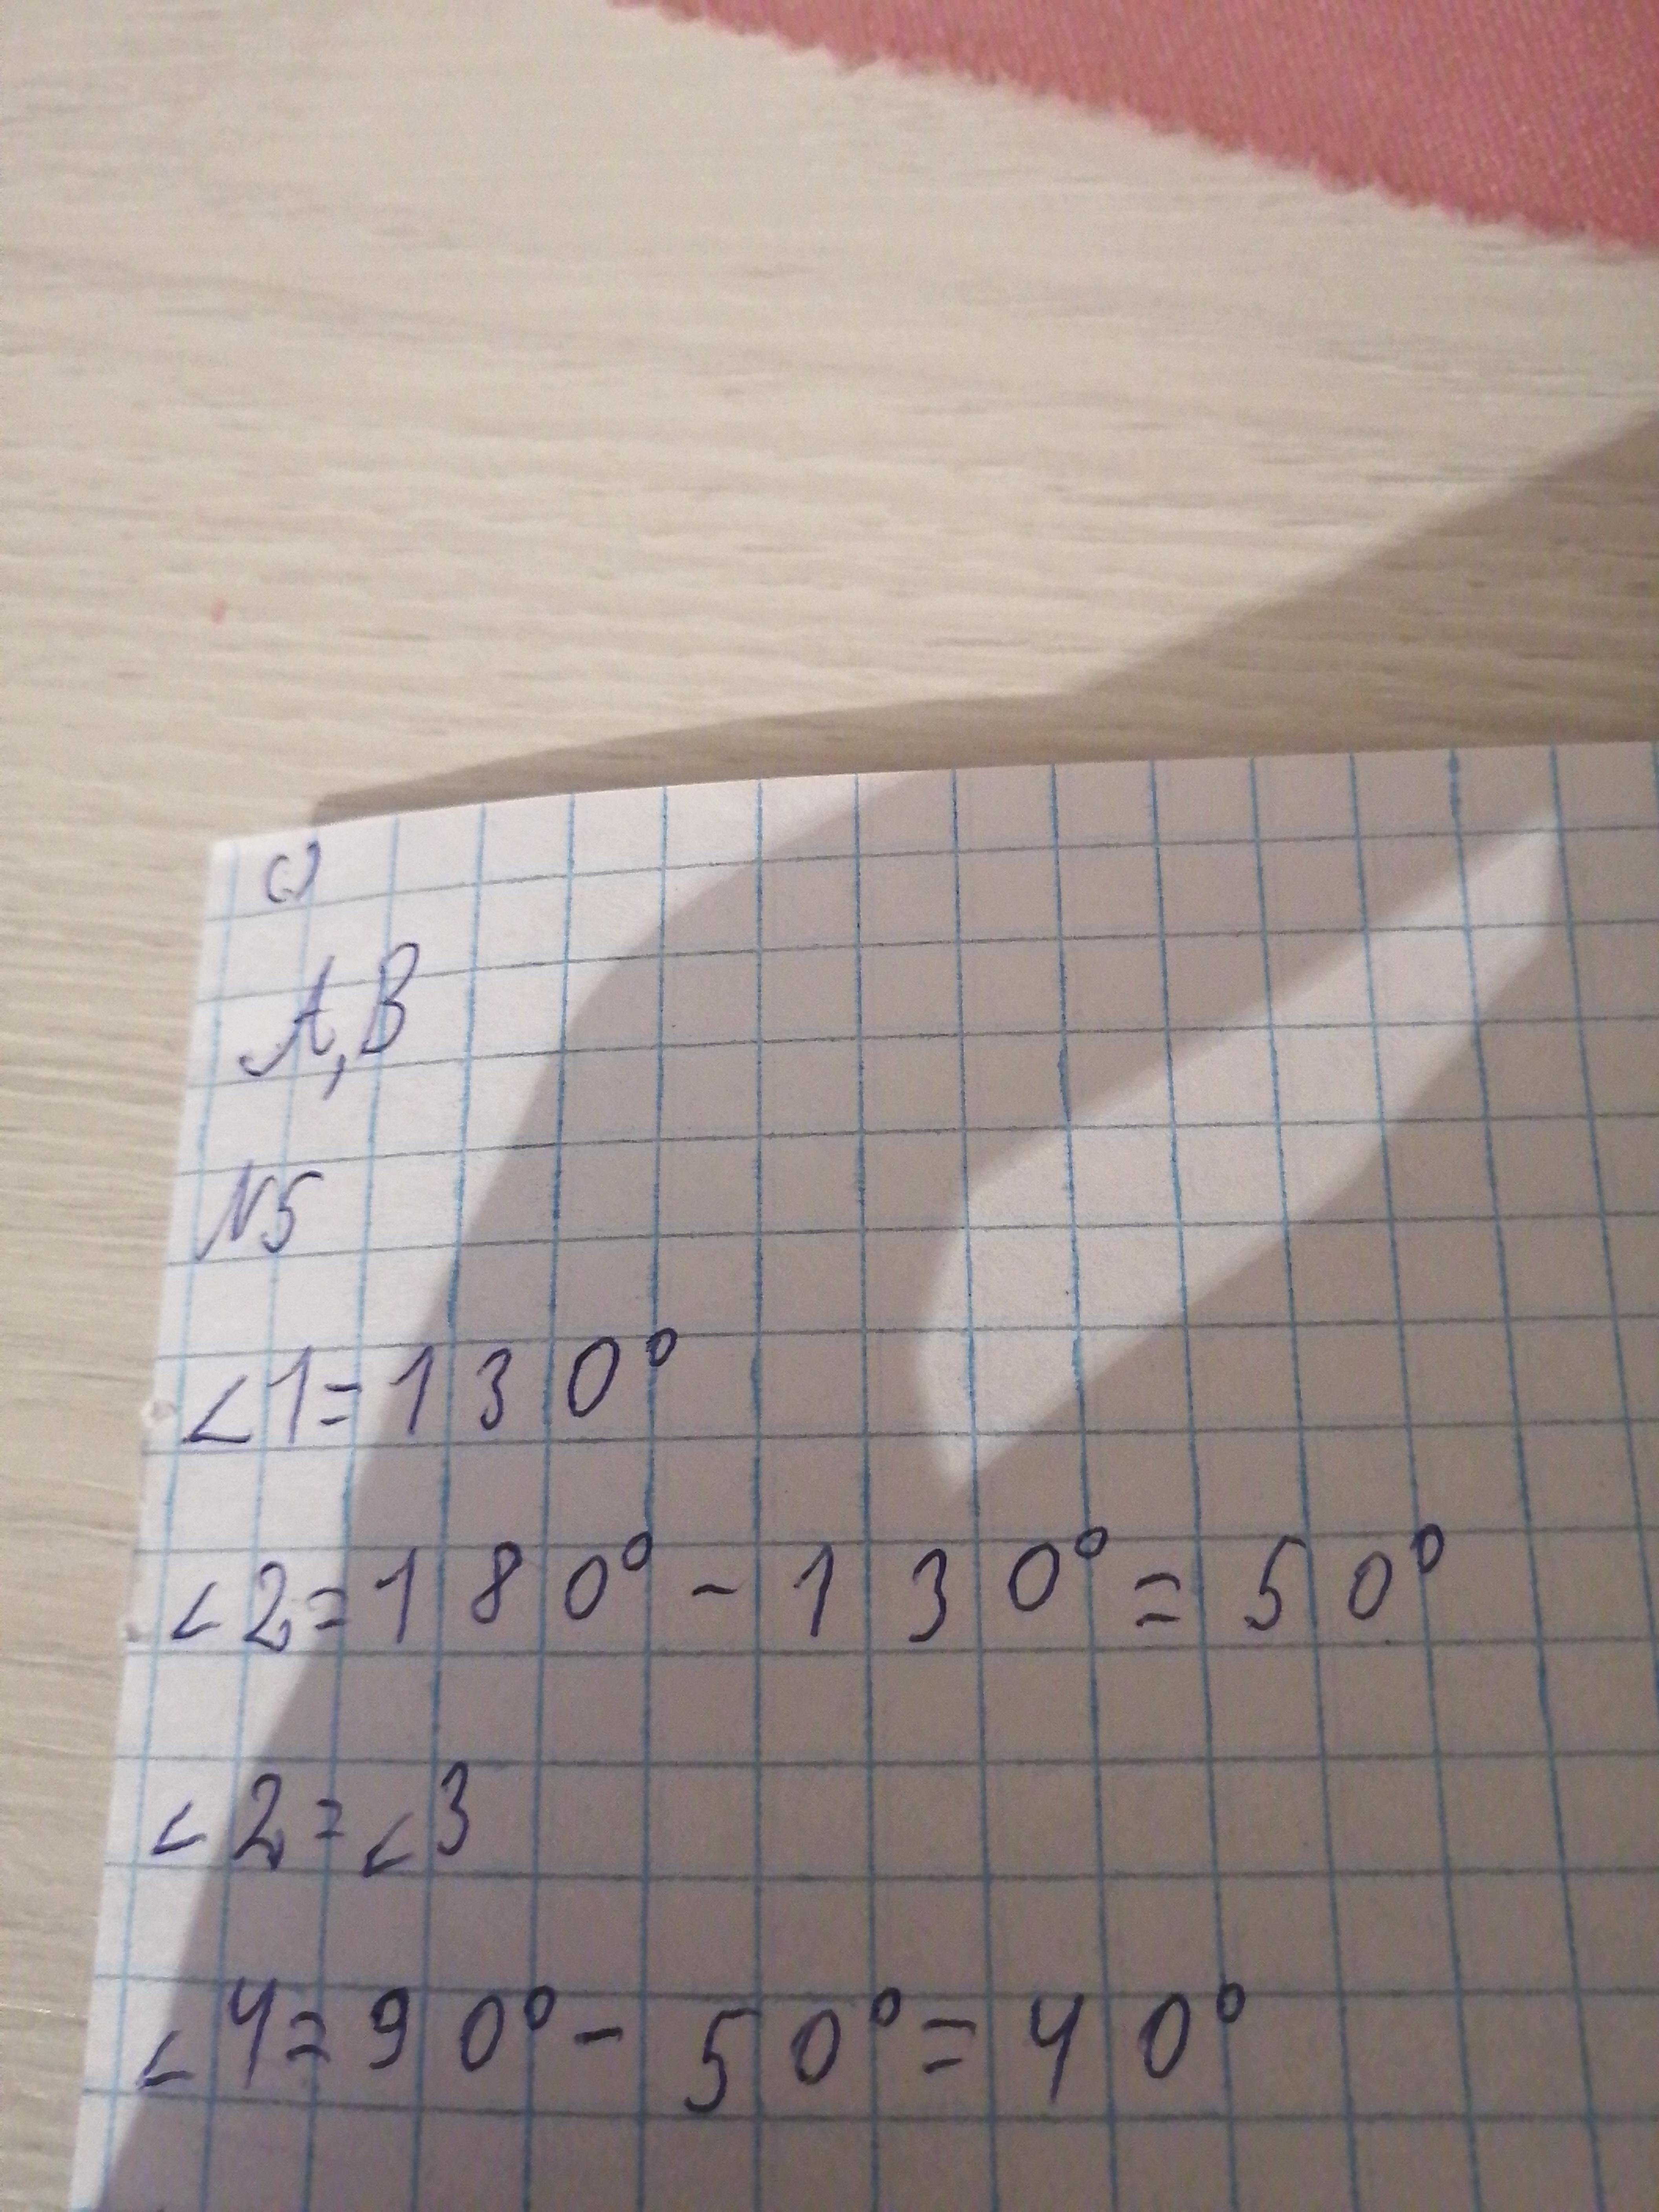 c)
A, B
N5
∠1=130°
∠2=180°-130°=50°
∠2=∠3
∠4=90°-50°=40°